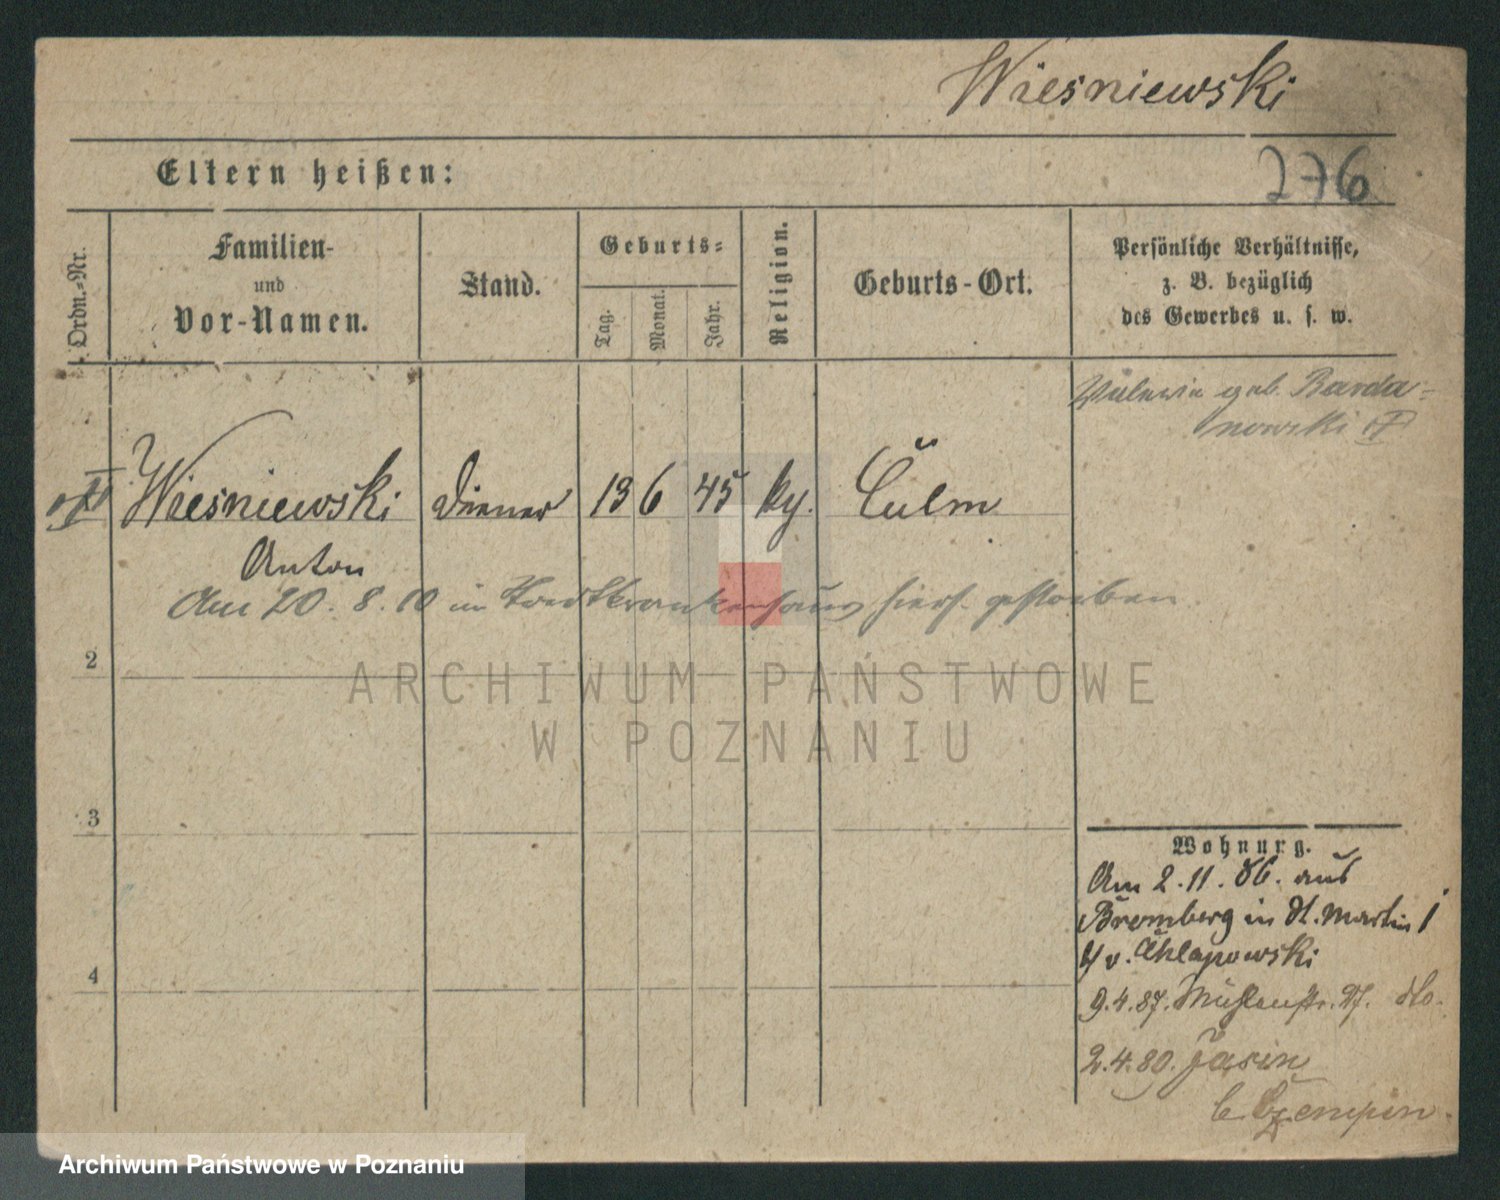 Wiesniewski
Eltern heißen:
276
Ordn.-Nr.
Familien-
und
Vor-Namen.
Stand.
Geburts-
Tag.
Monat.
Jahr.
Religion.
Geburts-Ort.
Persönliche Verhältnisse,
z. B. bezüglich
des Gewerbes u. s. w.
geb. Barda-
nowski
Wiesniewski Diener 13 6 45 kg. Culm
Anton
Am 20. 8. 10 im Stadtkrankenhaus hiers. gestorben
2
3
4
Wohnung.
Am 2. 11. 86. aus
Bromberg in St. Martin
4 v. Chlapowski
9. 4. 87. Mühlenstr. do.
2. 4. Jasin
b. Czempin.
ARCHIWUM PAŃSTWOWE
W POZNANIU
Archiwum Państwowe w Poznaniu